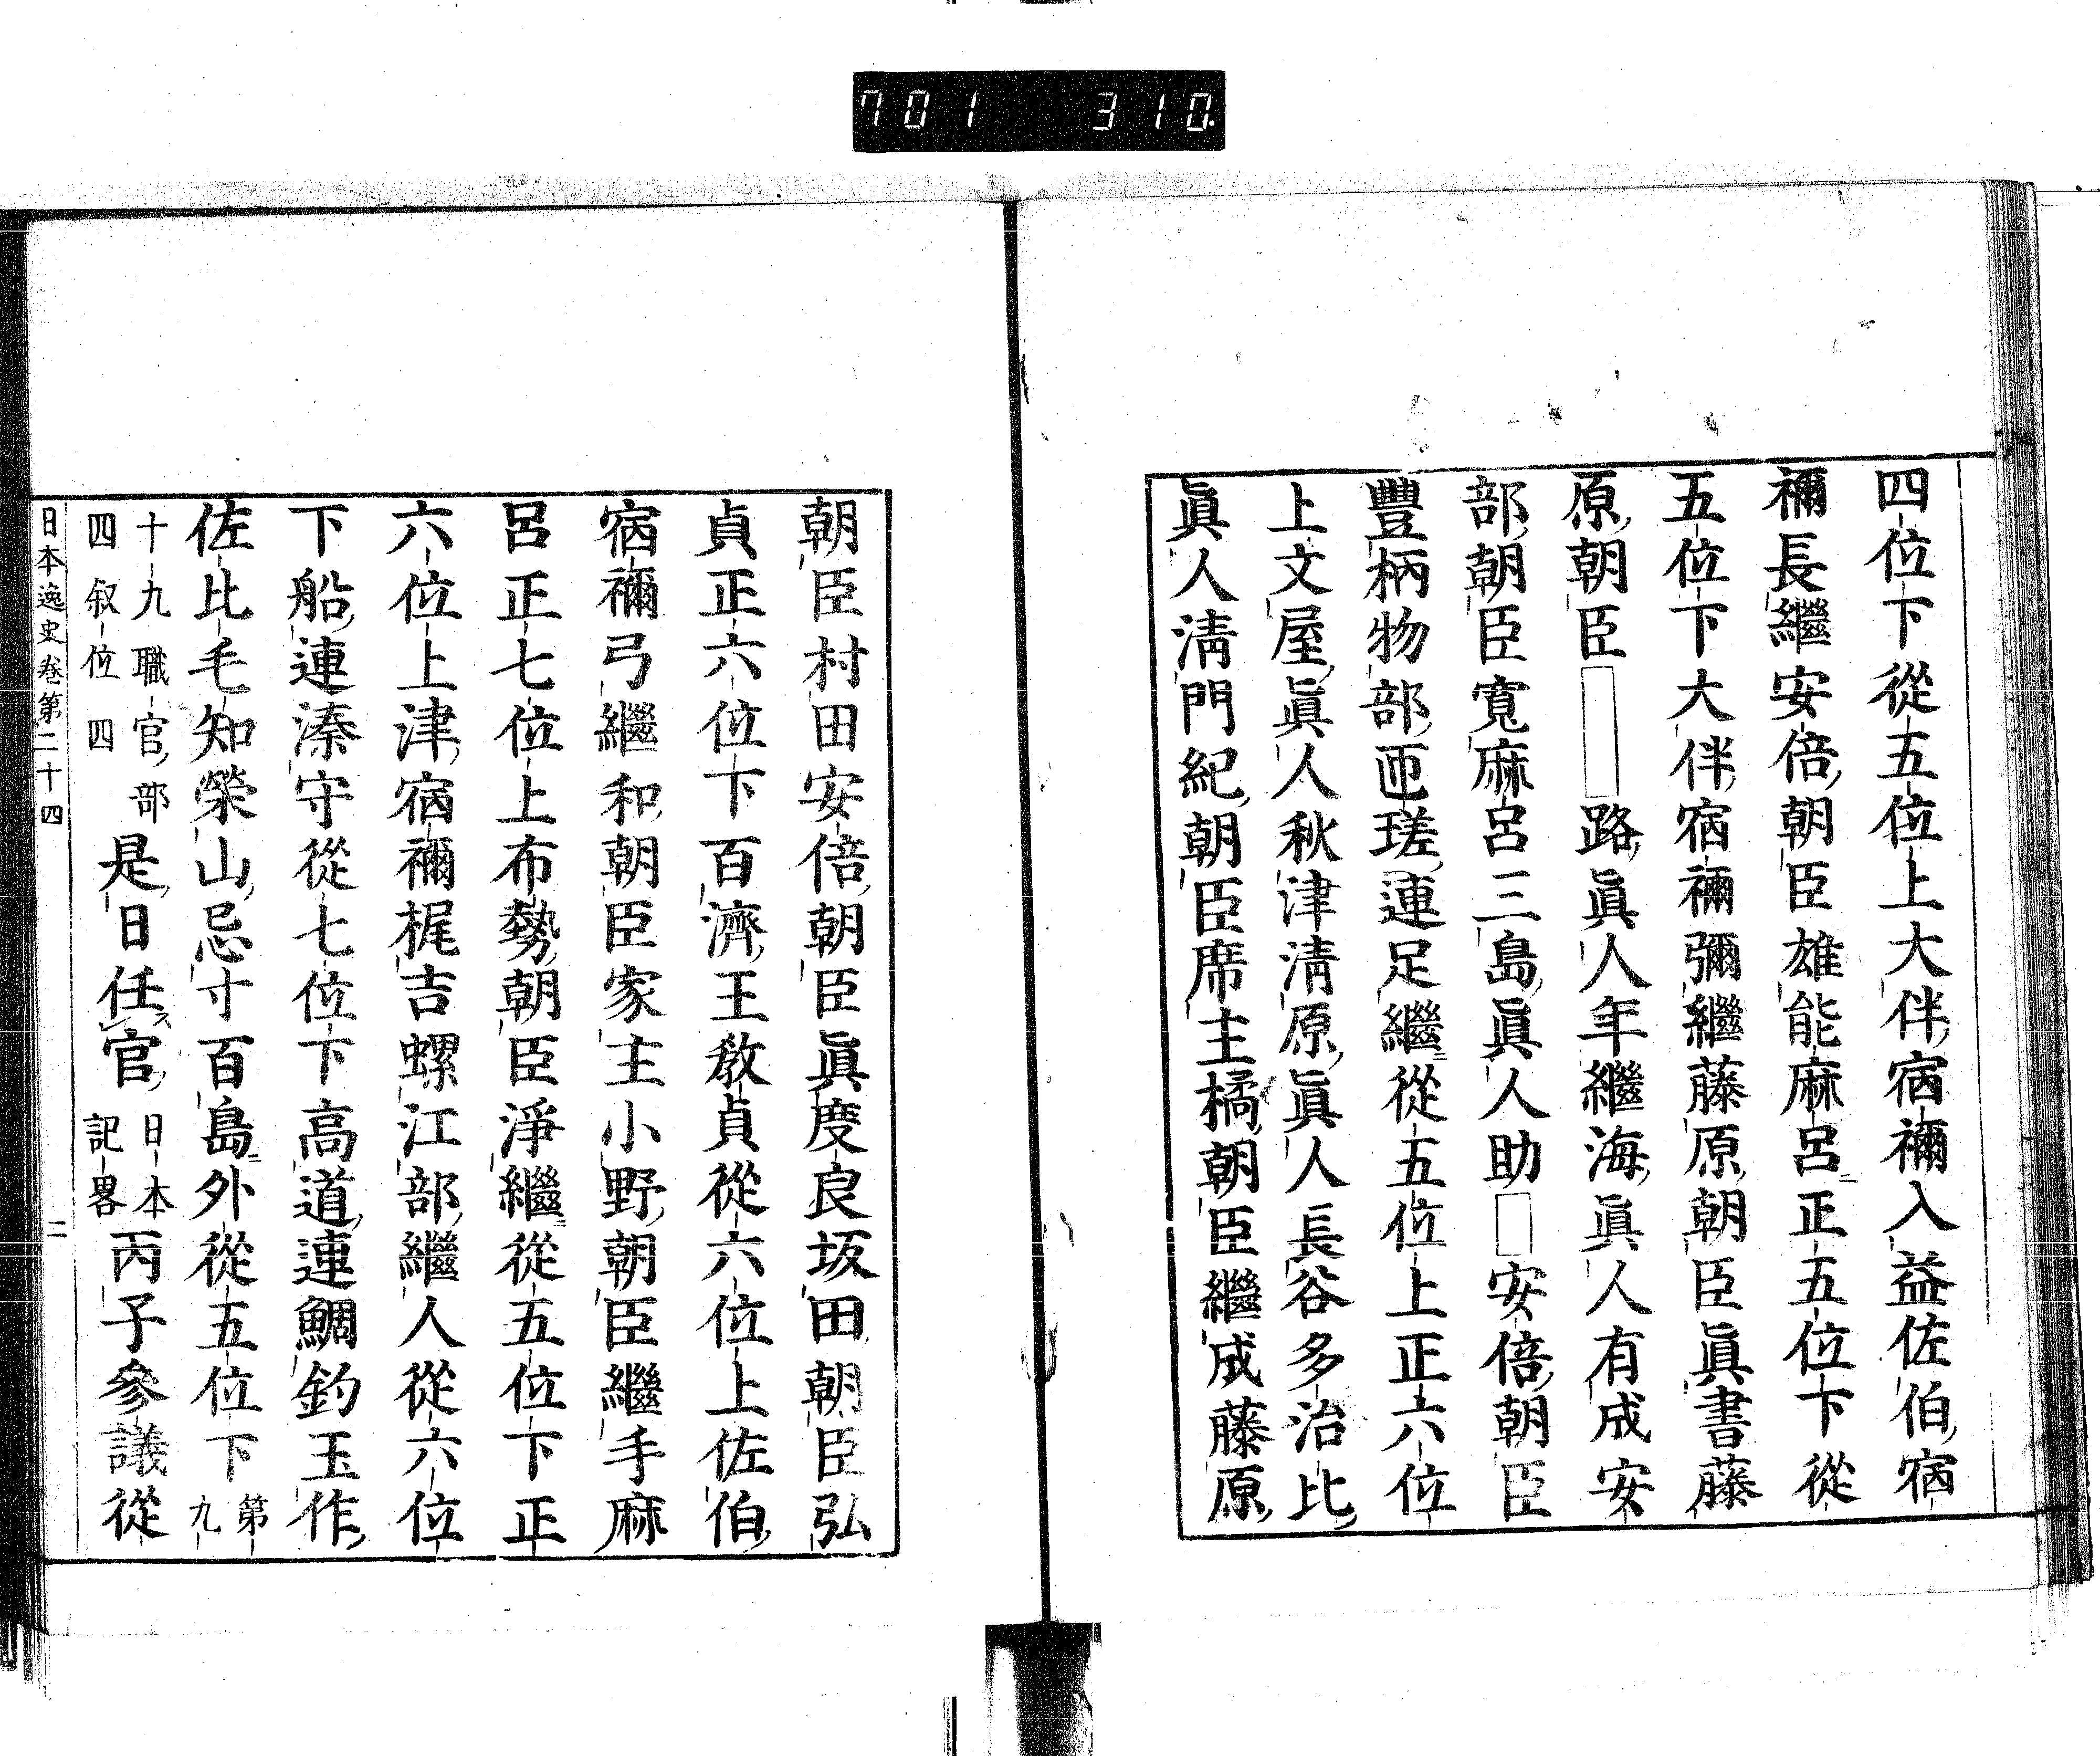 701 310
四位下從五位上大伴宿禰入益佐伯宿
禰長繼安倍朝臣雄能麻呂正五位下從
五位下大伴宿禰彌繼藤原朝臣眞書藤
原朝臣□路眞人年繼海眞人有成安
部朝臣寬麻呂三島眞人助□安倍朝臣
豐柄物部匝瑳連足繼從五位上正六位
上文屋眞人秋津淸原眞人長谷多治比
眞人淸門紀朝臣席主橘朝臣繼成藤原
朝臣村田安倍朝臣眞慶良坂田朝臣弘
貞正六位下百濟王敎貞從六位上佐伯
宿禰弓繼和朝臣家主小野朝臣繼手麻
呂正七位上布勢朝臣淨繼從五位下正
六位上津宿禰梶吉螺江部繼人從六位
下船連湊守從七位下高道連鯛釣玉作
佐比毛知榮山忌寸百島外從五位下第九
十九職官部四叙位四是日任官日本記畧丙子參議從
日本逸史卷第二十四 二